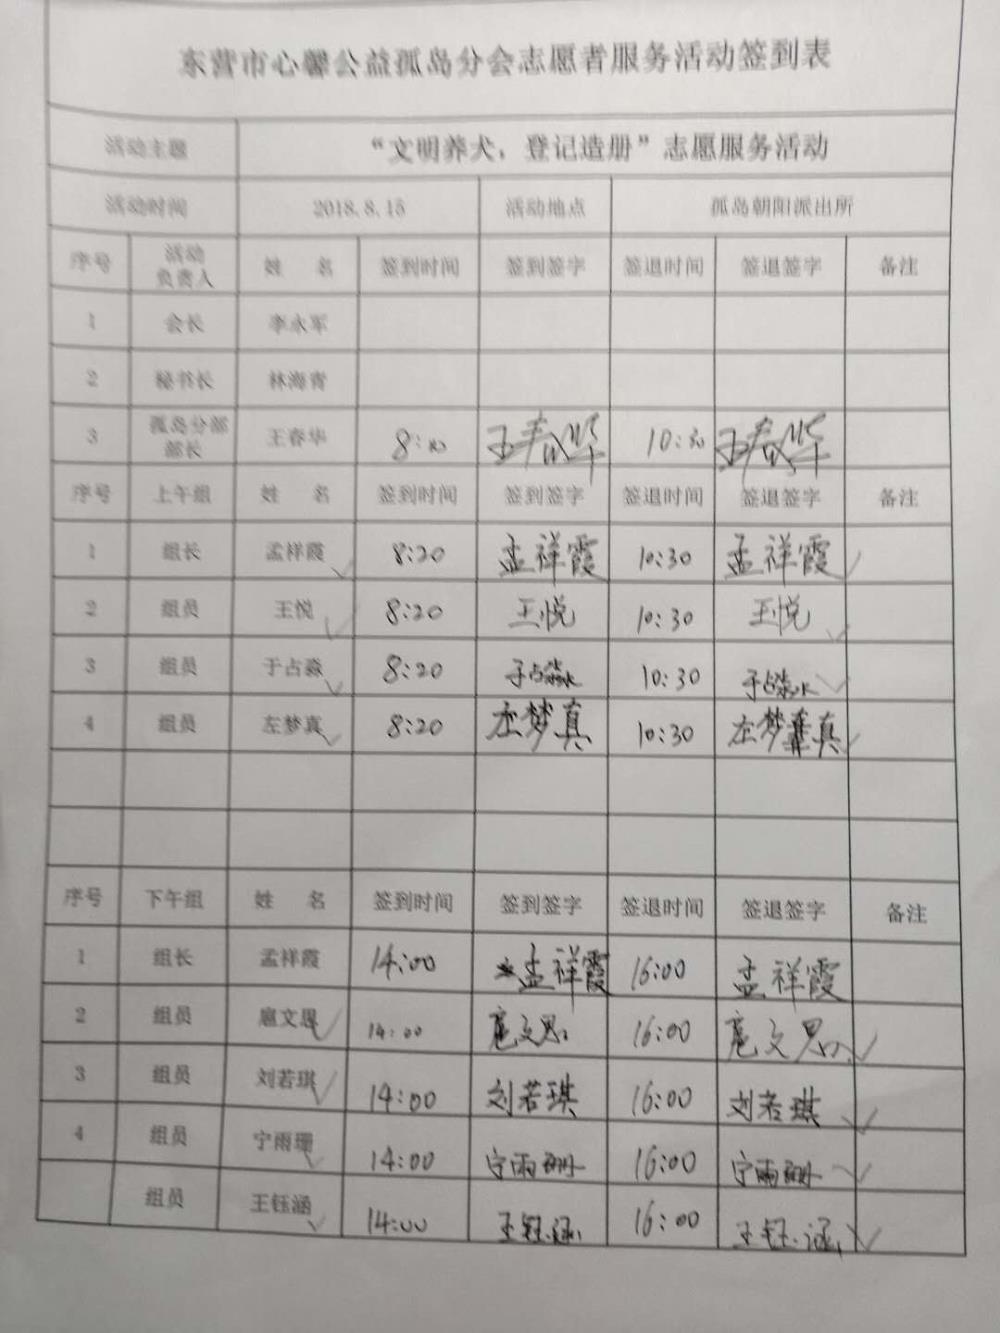 东营市心馨公益孤岛分会志愿者服务活动签到表
活动主题 “文明养犬，登记造册”志愿服务活动
活动时间 2018.8.15 活动地点 孤岛朝阳派出所
序号 活动负责人 姓 名 签到时间 签到签字 签退时间 签退签字 备注
1 会长 李永军
2 秘书长 林海青
3 孤岛分部部长 王春华 8:20 王春华 10:30 王春华
序号 上午组 姓 名 签到时间 签到签字 签退时间 签退签字 备注
1 组长 孟祥霞 8:20 孟祥霞 10:30 孟祥霞
2 组员 王悦 8:20 王悦 10:30 王悦
3 组员 于占淼 8:20 于占淼 10:30 于占淼
4 组员 左梦真 8:20 左梦真 10:30 左梦真
序号 下午组 姓 名 签到时间 签到签字 签退时间 签退签字 备注
1 组长 孟祥霞 14:00 孟祥霞 16:00 孟祥霞
2 组员 扈文思 14:00 扈文思 16:00 扈文思
3 组员 刘若琪 14:00 刘若琪 16:00 刘若琪
4 组员 宁雨珊 14:00 宁雨珊 16:00 宁雨珊
组员 王钰涵 14:00 王钰涵 16:00 王钰涵